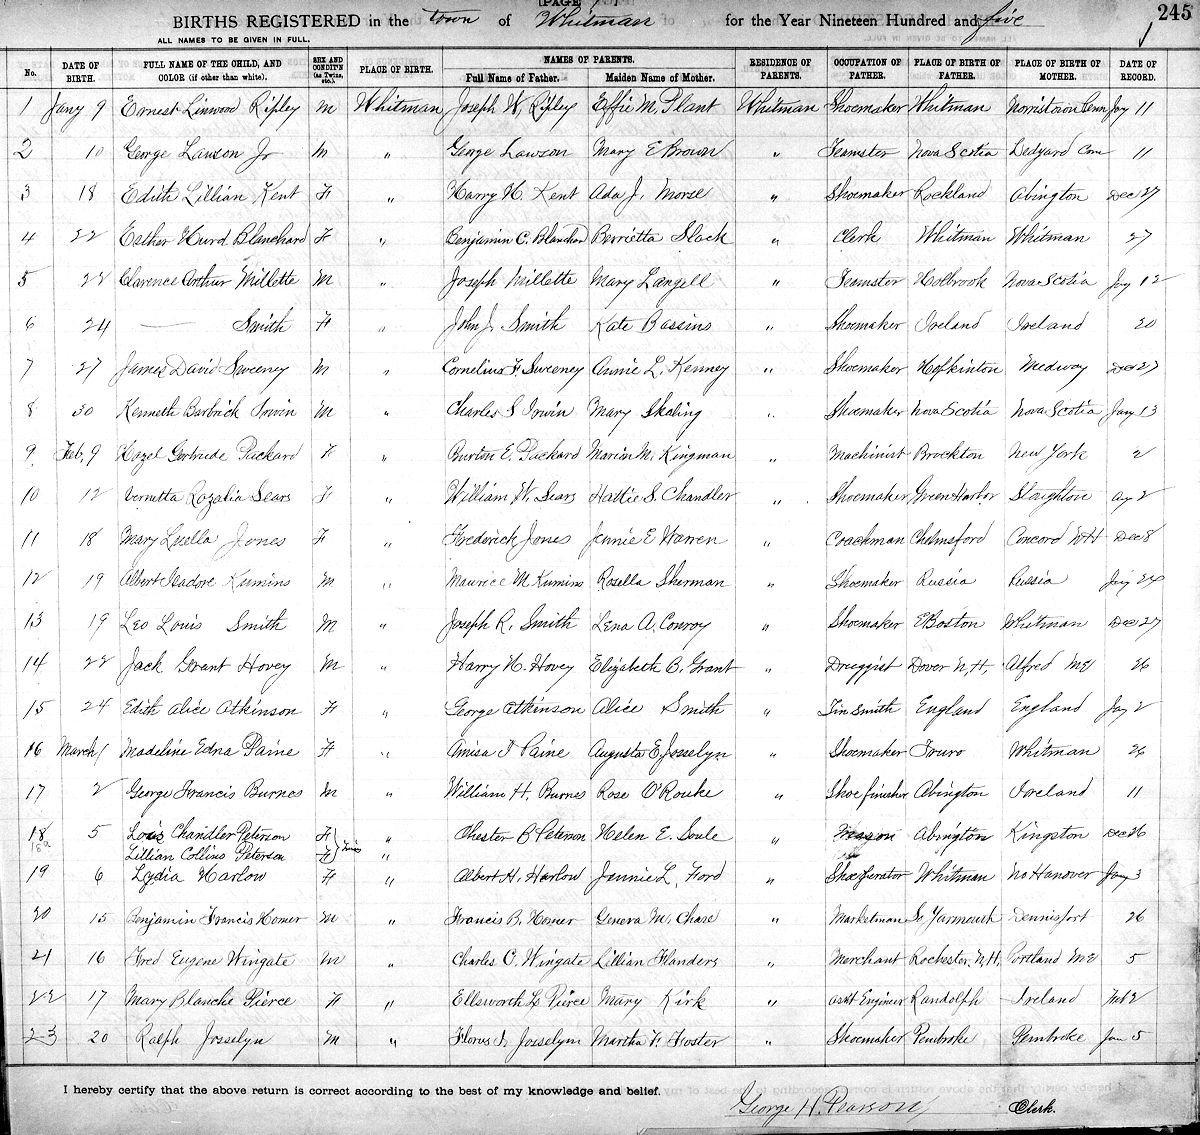 [PAGE 1]
245
BIRTHS REGISTERED in the town of Whitman for the Year Nineteen Hundred and five
ALL NAMES TO BE GIVEN IN FULL.
No. DATE OF BIRTH. FULL NAME OF THE CHILD, AND COLOR (if other than white). SEX AND CONDIT'N (as Twins, etc.) PLACE OF BIRTH. NAMES OF PARENTS. Full Name of Father. Maiden Name of Mother. RESIDENCE OF PARENTS. OCCUPATION OF FATHER. PLACE OF BIRTH OF FATHER. PLACE OF BIRTH OF MOTHER. DATE OF RECORD.
1 Jany 9 Ernest Linwood Ripley M Whitman Joseph W. Ripley Effie M. Plant Whitman Shoemaker Whitman Norristown Penn Jay 11
2 10 George Lawson Jr M " George Lawson Mary E Brown " Teamster Nova Scotia Ledyard Con 11
3 18 Edith Lillian Kent F " Harry H. Kent Ada J. Morse " Shoemaker Rockland Abington Dec 27
4 22 Esther Hurd Blanchard F " Benjamin C. Blanchard Henrietta Slack " Clerk Whitman Whitman 27
5 22 Clarence Arthur Millette M " Joseph Millette Mary Langell " Teamster Holbrook Nova Scotia Jay 12
6 24 — Smith F " John J. Smith Kate Bassins " Shoemaker Ireland Ireland 20
7 27 James David Sweeney M " Cornelius F. Sweeney Annie L. Kenney " Shoemaker Hopkinton Medway Dec 27
8 30 Kenneth Barbrick Irwin M " Charles S Irwin Mary Skaling " Shoemaker Nova Scotia Nova Scotia Jany 13
9 Feb. 9 Hazel Gertrude Packard F " Burton E. Packard Marian M. Kingman " Machinist Brockton New York 2
10 12 Vernetta Rozalia Sears F " William W. Sears Hattie S. Chandler " Shoemaker Green Harbor Stoughton 2
11 18 Mary Luella Jones F " Frederick Jones Jennie E Warren " Coachman Chelmsford Concord NH Dec 8
12 19 Albert Isadore Kumins M " Maurice M Kumins Rosella Sherman " Shoemaker Russia Russia Jay 24
13 19 Leo Louis Smith M " Joseph R. Smith Lena A. Conroy " Shoemaker E Boston Whitman Dec 27
14 22 Jack Grant Hovey M " Harry N. Hovey Elizabeth B. Grant " Druggist Dover N.H. Alfred Me 26
15 24 Edith Alice Atkinson F " George Atkinson Alice Smith " Tinsmith England England Jay 2
16 March 1 Madeline Edna Paine F " Amisa J Paine Augusta E Josselyn " Shoemaker Truro Whitman 26
17 2 George Francis Burnes M " William H. Burnes Rose O'Rouke " Shoe finisher Abington Ireland 11
18 5 Lois Chandler Peterson F " Chester B Peterson Helen E. Soule " Mason Abington Kingston Dec 26
18a Lillian Collins Peterson F Twins "
19 6 Lydia Harlow F " Albert H. Harlow Jennie L. Ford " Shoe operator Whitman No Hanover Jany 3
20 15 Benjamin Francis Homer M " Francis B. Homer Geneva M. Chase " Marketman So Yarmouth Dennisport 26
21 16 Fred Eugene Wingate M " Charles O. Wingate Lillian Flanders " Merchant Rochester, N.H. Portland Me 5
22 17 Mary Blanche Pierce F " Ellsworth L. Pierce Mary Kirk " Asst Engineer Randolph Ireland Feb 2
23 20 Ralph Josselyn M " Florus J. Josselyn Martha F. Foster " Shoemaker Pembroke Pembroke Jan 5
I hereby certify that the above return is correct according to the best of my knowledge and belief.
George H. Pearson Clerk.